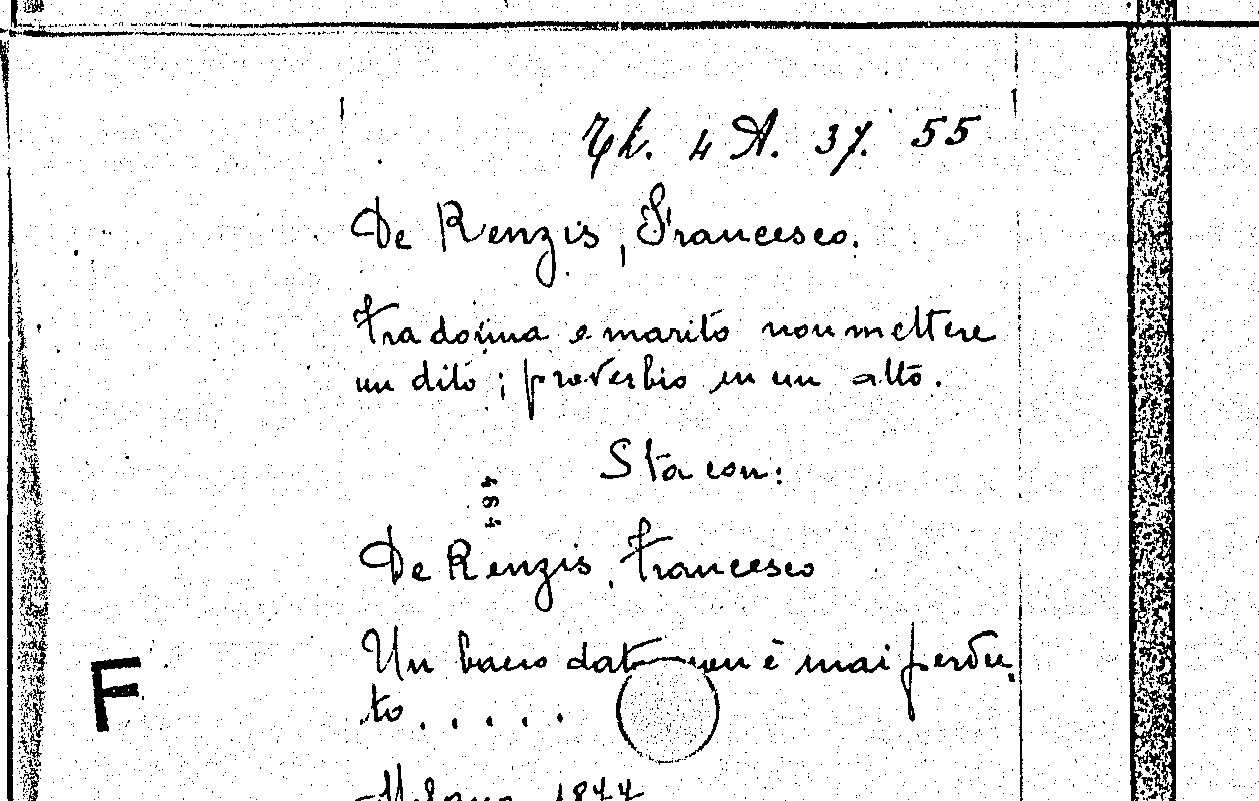 Th. 4 A. 37. 55
De Renzis, Francesco.
Tra donna e marito non mettere
un dito; proverbio in un atto.
Sta con:
464
De Renzis, Francesco
Un bacio dato non è mai perdu-
to.....
F
Milano, 1877